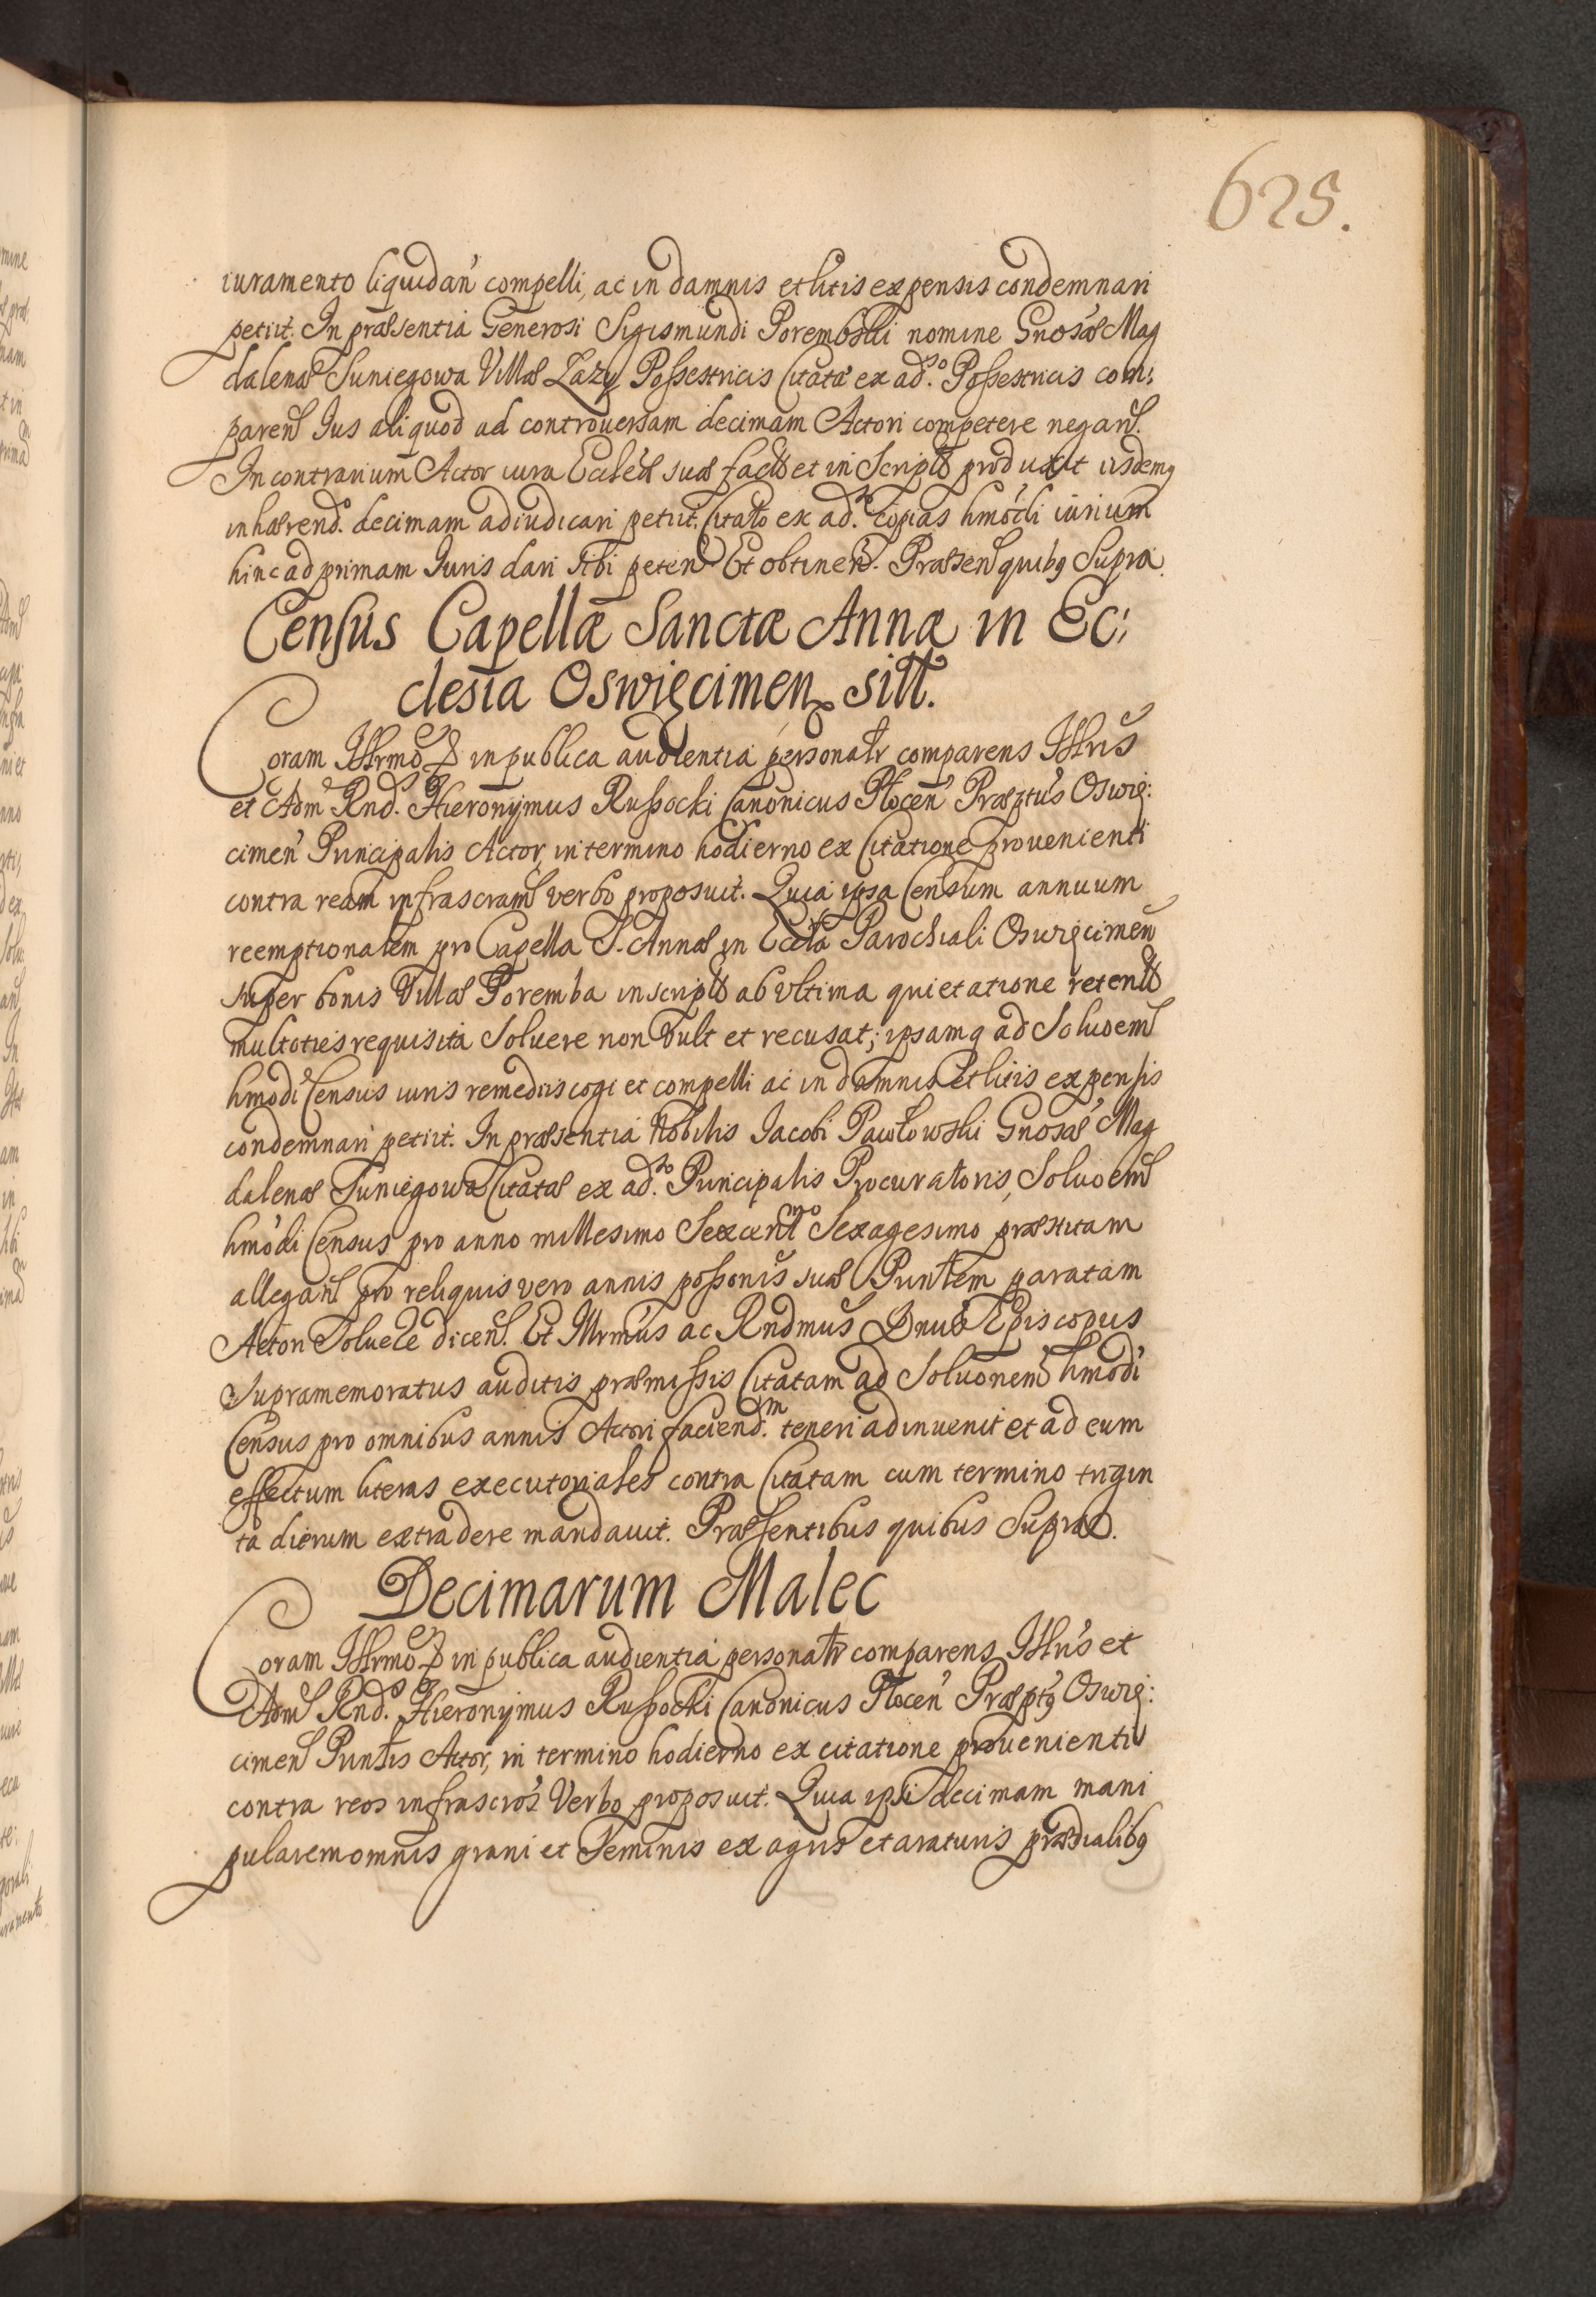 625.
iuramento liquidan' compelli, ac in damnis et litis expensis condemnari
petiit. In præsentia Generosi Sigismundi Porembski nomine Gnosæ Mag
dalenæ Suniegowa Villæ Lazy Possestricis Citatæ ex ad.so Possestricis com:
paren Ius aliquod ad controversam decimam Actori competere negan.
In contrarium Actor iura Ecclæ suæ facto et in Scripto produxit iisdemq
inhærend. decimam adiudicari petiit. Citato ex ad.so Copias hmodi iurium
hinc ad primam Iuris dari sibi peten Et obtinen. Præsen quibq Supra.
Census Capellæ Sanctæ Annæ in Ec:
clesia Oswięcimen sitt.
Coram Illrmo etc in publica audientia personalr comparens Illris
et Adm Rnd.s Hieronymus Russocki Canonicus Plocen' Præptus Oswię:
cimen' Principalis Actor, in termino hodierno ex Citatione provenienti
contra ream infrascram verbo proposuit. Quia ipsa Censum annuum
reemptionalem pro Capella S. Annæ in Eccla Parochiali Oswięcimen
super bonis Villæ Poremba inscripto ab Vltima quietatione retento
multoties requisita Soluere non Vult et recusat; ipsamq ad Soluoem
hmodi Census iuris remediis cogi et compelli ac in damnis et litis expensis
condemnari petiit. In præsentia Nobilis Iacobi Pawłowski Gnosæ Mag
dalenæ Suniegowa Citatæ ex ad.so Principalis Procuratoris, Soluoem
hmodi Census pro anno millesimo Sexcentmo Sexagesimo præstitam
allegan pro reliquis vero annis possonis suæ Puntem paratam
Actori Soluere dicen. Et Illrmus ac Rndmus Dnus Episcopus
Supramemoratus auditis præmissis Citatam ad Soluonem hmodi
Census pro omnibus annis Actori faciend.m teneri adinuenit et ad eum
effectum literas executoriales contra Citatam cum termino trigin
ta dierum extradere mandauit. Præsentibus quibus Supra.
Decimarum Malec
Coram Illrmo etc in publica audientia personalr comparens Illris et
Adm Rnd.s Hieronymus Russocki Canonicus Plocen' Præptq Oswię:
cimen Puntis Actor, in termino hodierno ex citatione provenienti
contra reos infrascros Verbo proposuit. Quia ipsi decimam mani
pularem omnis grani et Seminis ex agris et araturis prædialibq